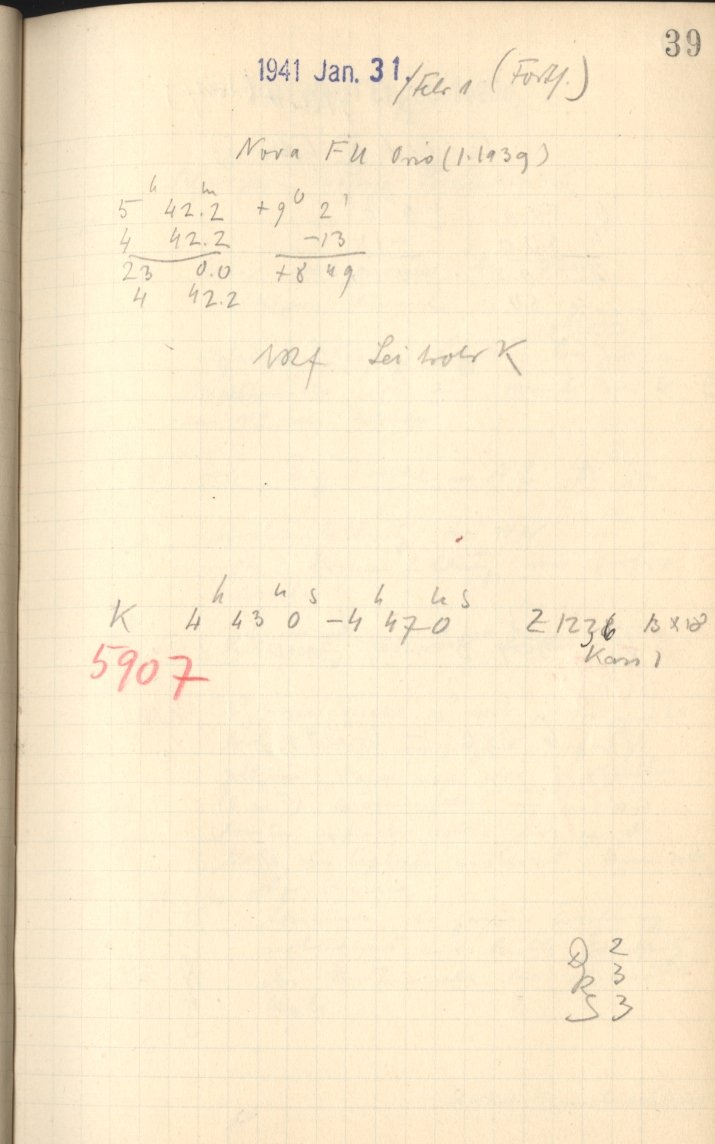 39
1941 Jan. 31./Febr 1 (Forts.)
Nova FU Orio (1.1939)
5ʰ 42.2ᵐ +9⁰ 2'
4 42.2 -13
23 0.0 +8 49
4 42.2
K 4ʰ 43ᵐ 0ˢ - 4ʰ 47ᵐ 0ˢ Z 1236 13 x 18
Kass 1
5907
D 2
R 3
S 3